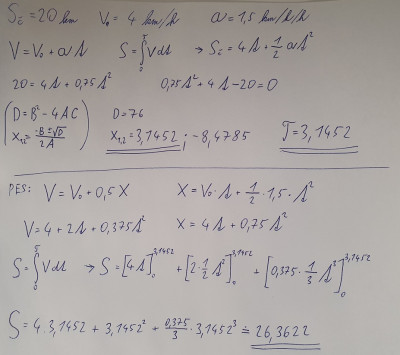 Sč = 20 km V₀ = 4 km/h a = 1,5 km/h/h
V = V₀ + a t S = ∫₀ᵗ V dt → Sč = 4t + 1/2 a t²
20 = 4t + 0,75t² 0,75t² + 4t - 20 = 0
(D = B² - 4AC D = 76
X₁,₂ = (-B ± √D)/2A) X₁,₂ = 3,1452 ; -8,4785 T = 3,1452
PES: V = V₀ + 0,5 X X = V₀·t + 1/2·1,5·t²
V = 4 + 2t + 0,375t² X = 4t + 0,75t²
S = ∫₀ᵗ V dt → S = [4t]₀^3,1452 + [2·1/2 t²]₀^3,1452 + [0,375·1/3 t³]₀^3,1452
S = 4·3,1452 + 3,1452² + 0,375/3 · 3,1452³ ≐ 26,3622